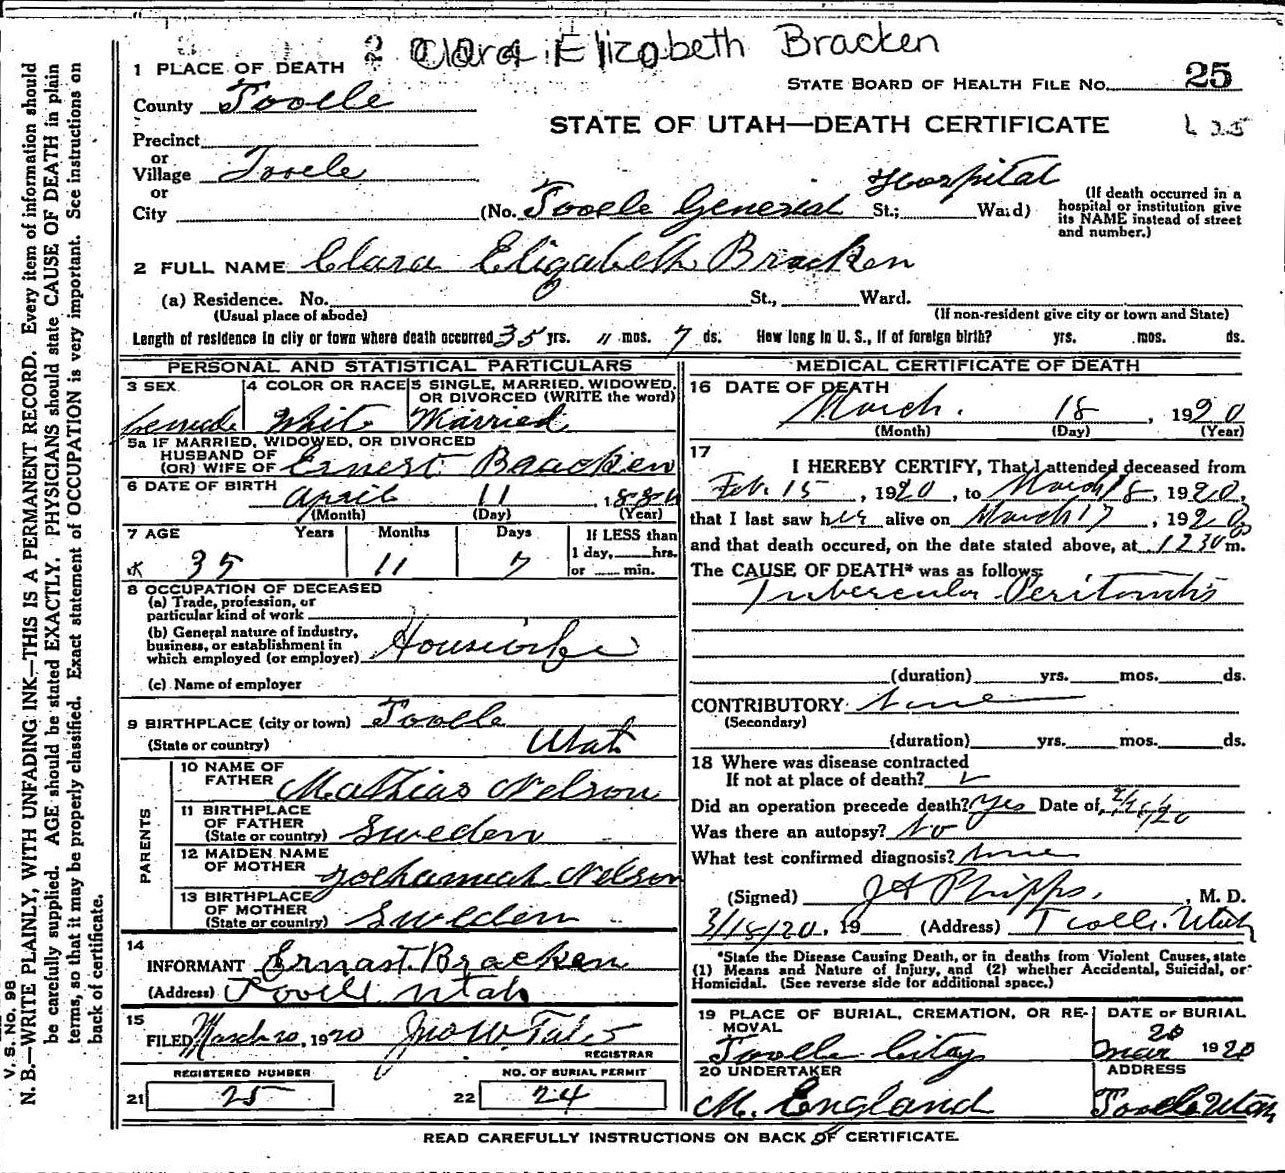 2 Clara Elizabeth Bracken
1 PLACE OF DEATH
STATE BOARD OF HEALTH FILE No. 25
County Tooele
STATE OF UTAH—DEATH CERTIFICATE
Precinct
or
Village Tooele
or
City (No. Tooele General Hospital St.; Ward)
(If death occurred in a
hospital or institution give
its NAME instead of street
and number.)
2 FULL NAME Clara Elizabeth Bracken
(a) Residence. No. St., Ward.
(Usual place of abode) (If non-resident give city or town and State)
Length of residence in city or town where death occurred 35 yrs. 11 mos. 7 ds. How long in U. S., if of foreign birth? yrs. mos. ds.
PERSONAL AND STATISTICAL PARTICULARS
3 SEX 4 COLOR OR RACE 5 SINGLE, MARRIED, WIDOWED,
OR DIVORCED (WRITE the word)
Female White Married
5a IF MARRIED, WIDOWED, OR DIVORCED
HUSBAND OF
(OR) WIFE OF Ernest Bracken
6 DATE OF BIRTH April 11, 1884
(Month) (Day) (Year)
7 AGE Years Months Days If LESS than
1 day, hrs.
or min.
35 11 7
8 OCCUPATION OF DECEASED
(a) Trade, profession, or
particular kind of work
(b) General nature of industry,
business, or establishment in
which employed (or employer) Housewife
(c) Name of employer
9 BIRTHPLACE (city or town) Tooele
(State or country) Utah
PARENTS
10 NAME OF
FATHER Mathias Nelson
11 BIRTHPLACE
OF FATHER
(State or country) Sweden
12 MAIDEN NAME
OF MOTHER Nelson
13 BIRTHPLACE
OF MOTHER
(State or country) Sweden
14
INFORMANT Ernast Bracken
(Address) Tooele Utah
15
FILED March 20, 1920 Jno W. Tate
REGISTRAR
REGISTERED NUMBER NO. OF BURIAL PERMIT
21 25 22 24
MEDICAL CERTIFICATE OF DEATH
16 DATE OF DEATH
March 18, 1920
(Month) (Day) (Year)
17
I HEREBY CERTIFY, That I attended deceased from
Feb. 15, 1920, to March 18, 1920,
that I last saw her alive on March 17, 1920
and that death occured, on the date stated above, at 1230 m.
The CAUSE OF DEATH* was as follows:
Tubercular Peritonitis
(duration) yrs. mos. ds.
CONTRIBUTORY None
(Secondary)
(duration) yrs. mos. ds.
18 Where was disease contracted
If not at place of death?
Did an operation precede death? Yes Date of
Was there an autopsy? No
What test confirmed diagnosis? None
(Signed) J A Phipps, M. D.
3/18/20, 19 (Address) Tooele. Utah
*State the Disease Causing Death, or in deaths from Violent Causes, state
(1) Means and Nature of Injury, and (2) whether Accidental, Suicidal, or
Homicidal. (See reverse side for additional space.)
19 PLACE OF BURIAL, CREMATION, OR RE-
MOVAL
Tooele City
DATE OF BURIAL
Mar 20 1920
20 UNDERTAKER
M. England
ADDRESS
Tooele Utah
READ CAREFULLY INSTRUCTIONS ON BACK OF CERTIFICATE.
V. S. No. 98
N. B.—WRITE PLAINLY, WITH UNFADING INK—THIS IS A PERMANENT RECORD. Every item of information should
be carefully supplied. AGE should be stated EXACTLY. PHYSICIANS should state CAUSE OF DEATH in plain
terms, so that it may be properly classified. Exact statement of OCCUPATION is very important. See instructions on
back of certificate.